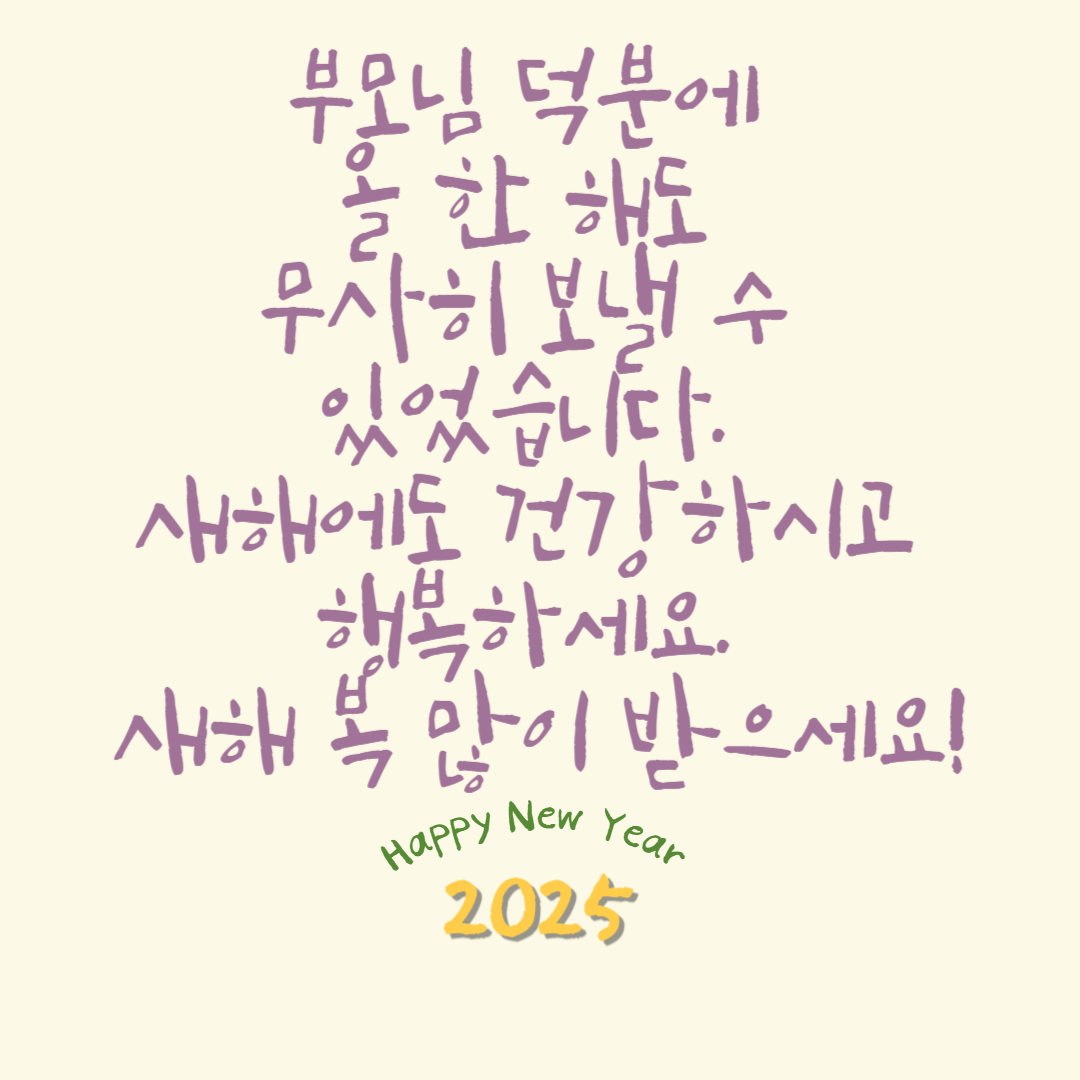 부모님 덕분에
올 한 해도
무사히 보낼 수
있었습니다.
새해에도 건강하시고
행복하세요.
새해 복 많이 받으세요!
Happy New Year
2025